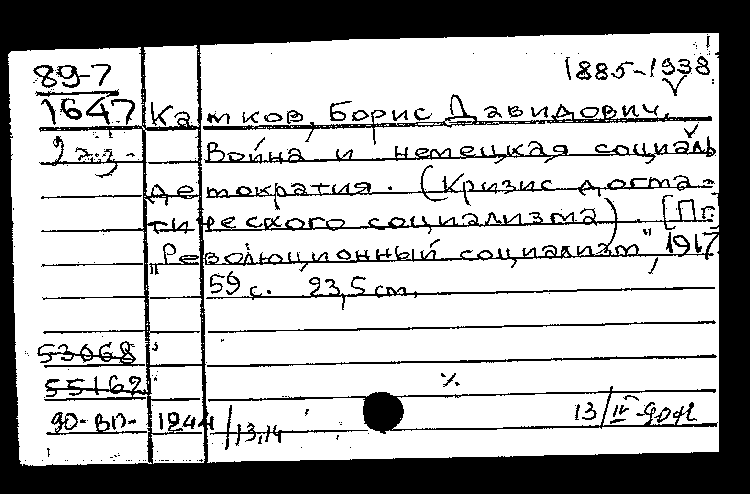 89-7
1885-1938
1647 Камков, Борис Давидович.
2 экз. Война и немецкая социаль
демократия. (Кризис догма-
тического социализма). [Пг.
"Революционный социализм", 1917
59 с. 23,5 cm.
53068
55162
%
90-ВП- 1244/13,14 13/IV-90